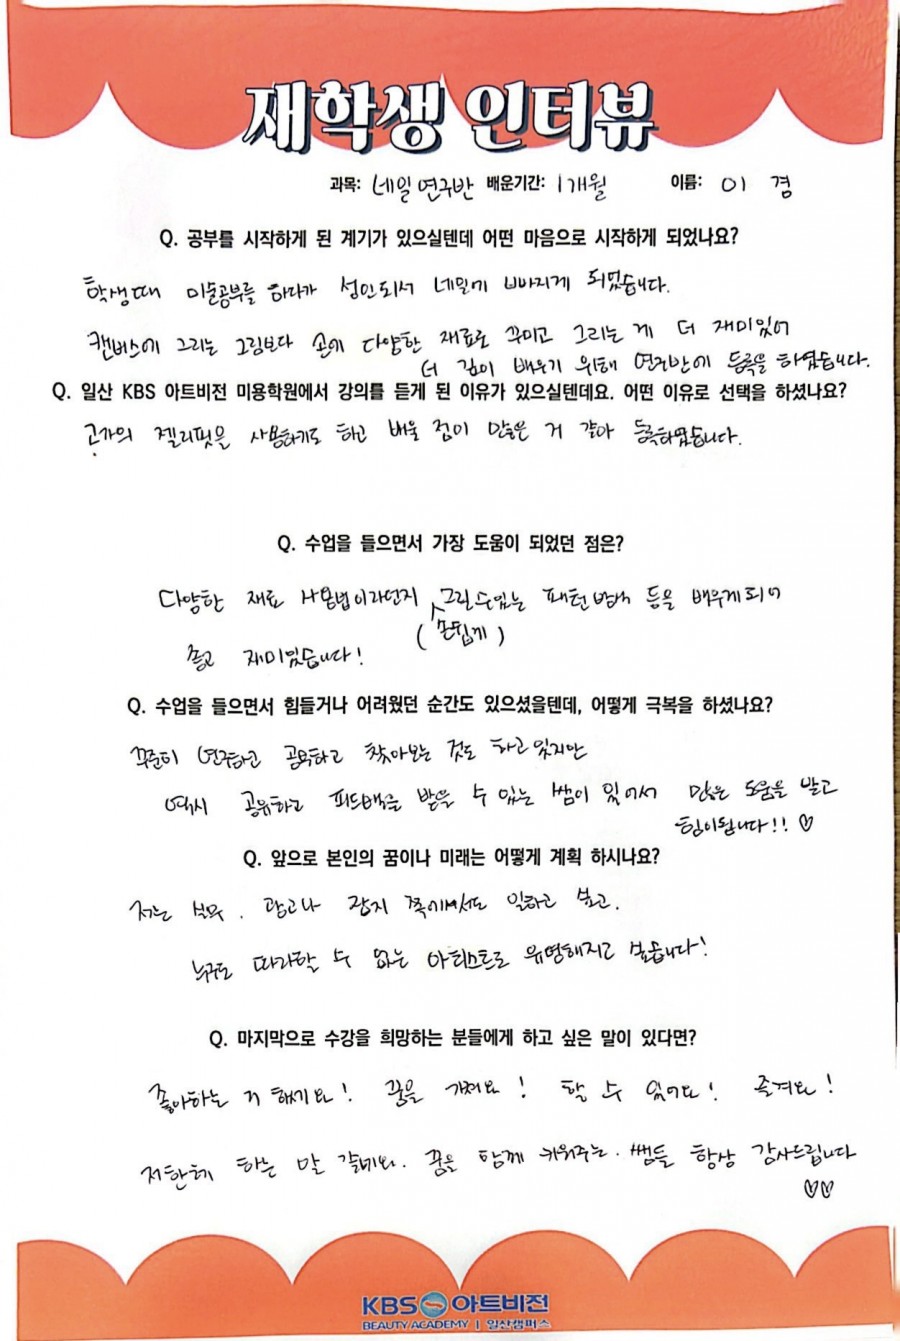 재학생 인터뷰
과목: 네일연구반 배운기간: 1개월 이름: 이 겸
Q. 공부를 시작하게 된 계기가 있으실텐데 어떤 마음으로 시작하게 되었나요?
학생때 미술공부를 하다가 성인되서 네일에 빠지게 되었습니다.
캔버스에 그리는 그림보다 손에 다양한 재료로 꾸미고 그리는 게 더 재미있어
더 깊이 배우기 위해 연구반에 등록을 하였습니다.
Q. 일산 KBS 아트비전 미용학원에서 강의를 듣게 된 이유가 있으실텐데요. 어떤 이유로 선택을 하셨나요?
고가의 젤리핏을 사용하기도 하고 배울 점이 많은 거 같아 등록하였습니다.
Q. 수업을 들으면서 가장 도움이 되었던 점은?
다양한 재료 사용법이라던지 그릴수있는 패턴방법 등을 배우게되어
(손쉽게)
좋고 재미있습니다!
Q. 수업을 들으면서 힘들거나 어려웠던 순간도 있으셨을텐데, 어떻게 극복을 하셨나요?
꾸준히 연구하고 공부하고 찾아보는 것도 하고있지만
역시 공유하고 피드백을 받을 수 있는 쌤이 있어서 많은 도움을 받고
힘이됩니다!! ♡
Q. 앞으로 본인의 꿈이나 미래는 어떻게 계획 하시나요?
저는 실무. 광고나 잡지 쪽에서도 일하고 싶고.
누구도 따라할 수 없는 아티스트로 유명해지고 싶습니다!
Q. 마지막으로 수강을 희망하는 분들에게 하고 싶은 말이 있다면?
좋아하는 거 하세요! 꿈을 가져요! 할 수 있어요! 즐겨요!
저한테 하는 말 같네요. 꿈을 함께 키워주는. 쌤들 항상 감사드립니다
♡♡
KBS 아트비전
BEAUTY ACADEMY | 일산캠퍼스